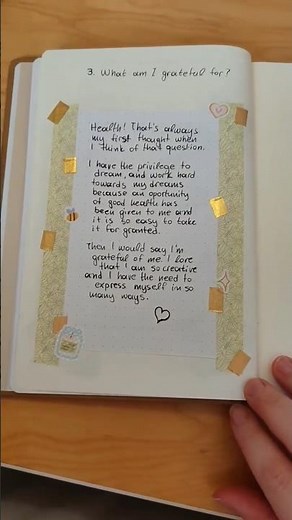 3. What am I grateful for?
Health! That's always
my first thought when
I think of that question.
I have the privilege to
dream, and work hard
towards my dreams
because an oportunity
of good health has
been given to me and
it is so easy to take
it for granted.
Then I would say I'm
grateful of me. I love
that I am so creative
and I have the need to
express myself in so
many ways.